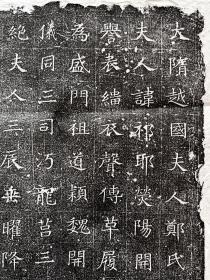 大隋越國夫人鄭氏
夫人諱祁耶熒陽開
譽表緇衣聲傳草履
為盛門祖道穎魏開
儀同三司沔龍莒三
絕夫人三辰垂曜降